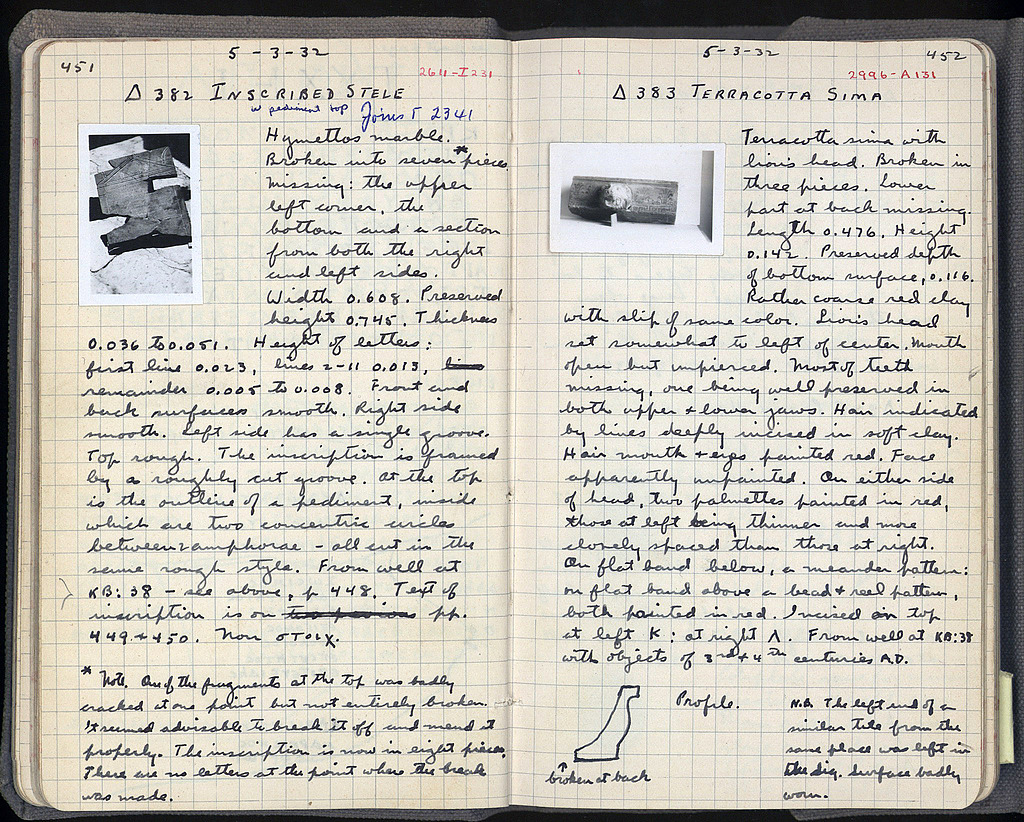 451
5-3-32
2611-I231
Δ 382 INSCRIBED STELE
w pediment top
Joins Γ 2341
Hymettos marble.
Broken into seven* pieces.
Missing: the upper
left corner, the
bottom and a section
from both the right
and left sides.
Width 0.608. Preserved
height 0.745. Thickness
0.036 to 0.051. Height of letters:
first line 0.023, lines 2-11 0.013,
remainder 0.005 to 0.008. Front and
back surfaces smooth. Right side
smooth. Left side has a single groove.
Top rough. The inscription is framed
by a roughly cut groove. At the top
is the outline of a pediment, inside
which are two concentric circles
between 2 amphorae - all cut in the
same rough style. From well at
KB:38 - see above, p 448. Text of
inscription is on pp.
449 + 450. Non στοιχ.
* Note. One of the fragments at the top was badly
cracked at one point but not entirely broken.
It seemed advisable to break it off and mend it
properly. The inscription is now in eight pieces.
There are no letters at the point where the break
was made.
5-3-32
452
2996-A131
Δ 383 TERRACOTTA SIMA
Terracotta sima with
lion's head. Broken in
three pieces. Lower
part at back missing.
Length 0.476. Height
0.142. Preserved depth
of bottom surface, 0.116.
Rather coarse red clay
with slip of same color. Lion's head
set somewhat to left of center. Mouth
open but unpierced. Most of teeth
missing, one being well preserved in
both upper + lower jaws. Hair indicated
by lines deeply incised in soft clay.
Hair mouth + eyes painted red. Face
apparently unpainted. On either side
of head, two palmettes painted in red,
those at left being thinner and more
closely spaced than those at right.
On flat band below, a meander pattern:
on flat band above a bead + reel pattern,
both painted in red. Incised on top
at left K: at right Λ. From well at KB:38
with objects of 3rd + 4th centuries A.D.
Profile.
broken at back
N.B. The left end of a
similar tile from the
same place was left in
the dig. Surface badly
worn.